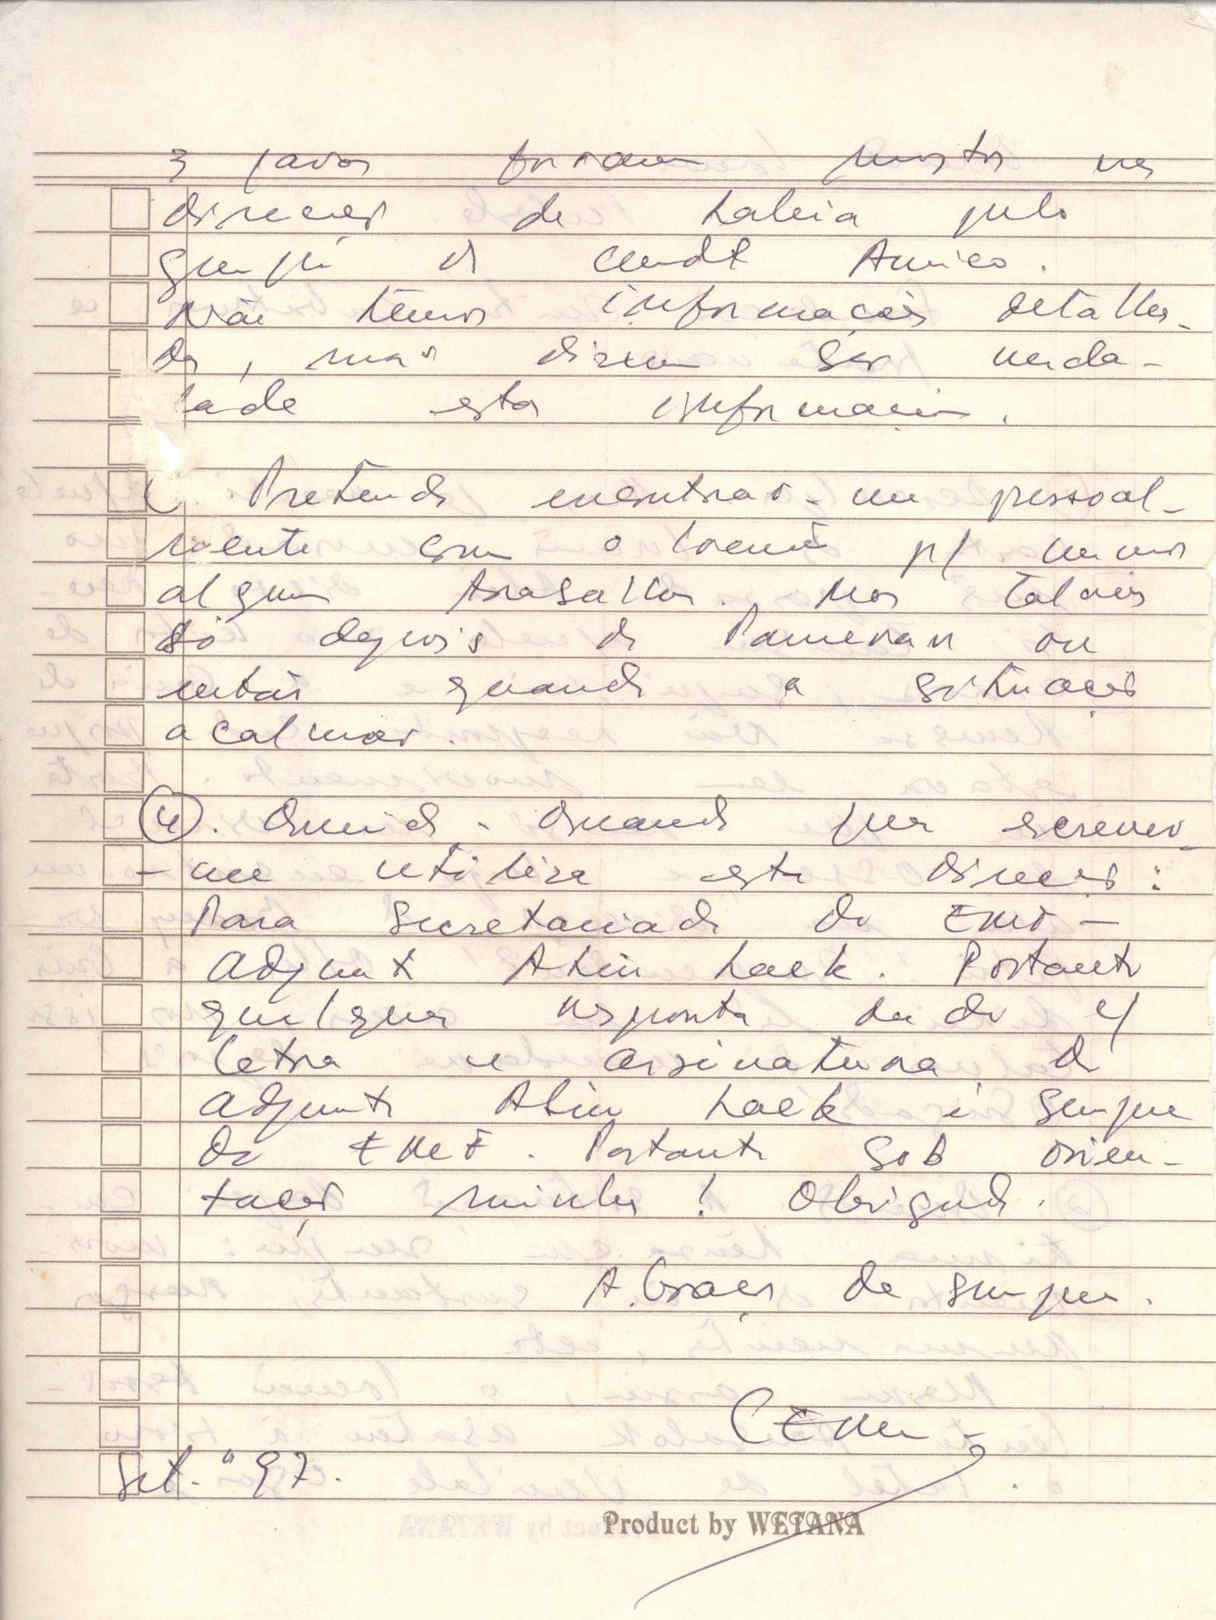 3 javos foram mortos na
direcção de Laleia pelo
grupo do cmdt Amico.
Não temos informações detalha-
da, mas dizem ser verda-
dade esta informação.
Pretendo encontrar-me pessoal-
mente com o p/ vermos
alguns trabalhos. Mas talvez
só depois do Pamevan ou
então quando a situação
acalmar.
4. Querido. Quando for escrever-
-me utiliza esta direcção:
Para Secretariado do EMF -
Adjunto Alin Laek. Portanto
qualquer resposta dado c/
letra e assinatura do
adjunto Alin Laek é sempre
do EMF. Portanto sob orien-
tação minha! Obrigado.
Abraços de sempre.
Set.º 97.
Product by WETANA